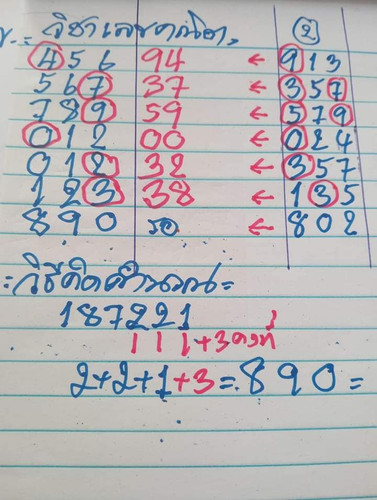 วิชาเลขคณิต. ②
456 94 ← 913
567 37 ← 357
789 59 ← 579
012 00 ← 024
012 32 ← 357
123 38 ← 135
890 รอ ← 802
= วิธีคิดคำนวณ =
187221
111+3คงที่
2+2+1+3=890=